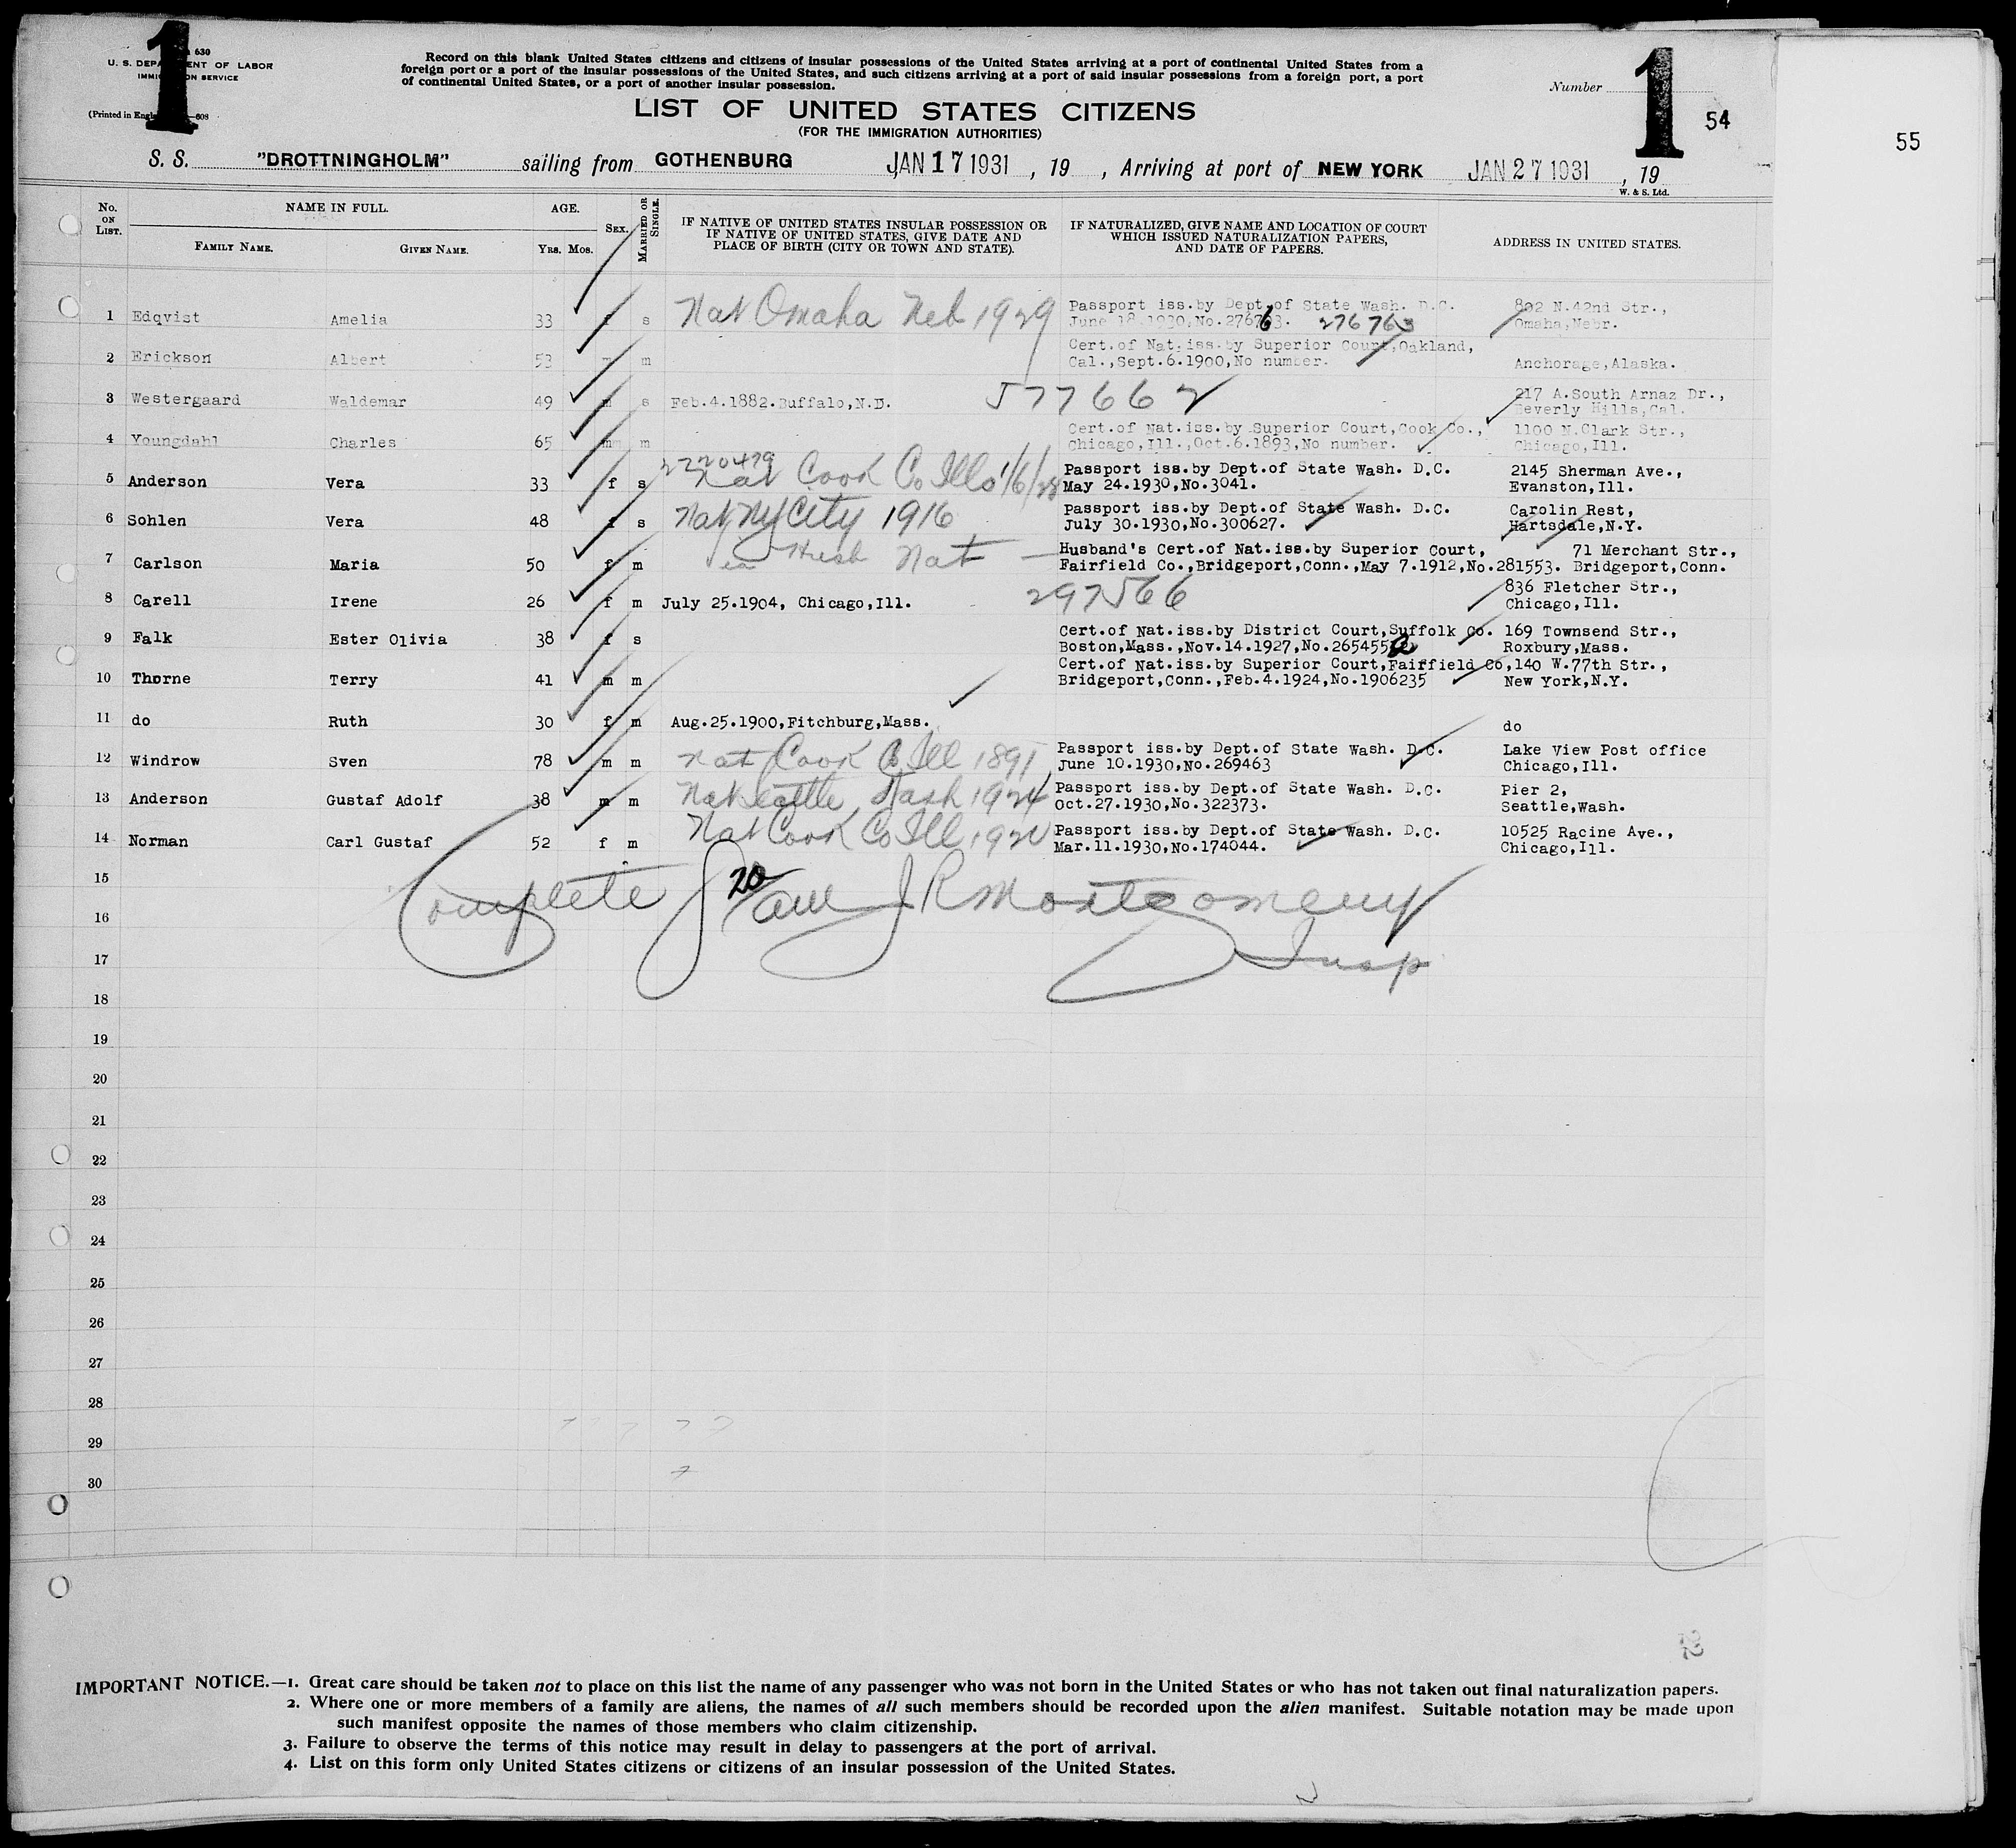 630
U. S. DEPA ENT OF LABOR
IMMIG ON SERVICE
(Printed in Engl 608
1
Record on this blank United States citizens and citizens of insular possessions of the United States arriving at a port of continental United States from a
foreign port or a port of the insular possessions of the United States, and such citizens arriving at a port of said insular possessions from a foreign port, a port
of continental United States, or a port of another insular possession.
Number
1
54
55
LIST OF UNITED STATES CITIZENS
(FOR THE IMMIGRATION AUTHORITIES)
S. S. "DROTTNINGHOLM" sailing from GOTHENBURG JAN 17 1931 , 19 , Arriving at port of NEW YORK JAN 27 1931 , 19
W. & S. Ltd.
No. ON LIST. NAME IN FULL. FAMILY NAME. GIVEN NAME. AGE. YRS. MOS. SEX. MARRIED OR SINGLE. IF NATIVE OF UNITED STATES INSULAR POSSESSION OR IF NATIVE OF UNITED STATES, GIVE DATE AND PLACE OF BIRTH (CITY OR TOWN AND STATE). IF NATURALIZED, GIVE NAME AND LOCATION OF COURT WHICH ISSUED NATURALIZATION PAPERS, AND DATE OF PAPERS. ADDRESS IN UNITED STATES.
1 Edqvist Amelia 33 f s Nat Omaha Neb 1929 Passport iss.by Dept.of State Wash. D.C. 802 N.42nd Str.,
June 18.1930,No.276763. 276763 Omaha,Nebr.
2 Erickson Albert 53 m m Cert.of Nat.iss.by Superior Court,Oakland,
Cal.,Sept.6.1900,No number. Anchorage,Alaska.
3 Westergaard Waldemar 49 m s Feb.4.1882.Buffalo,N.D. 577662 217 A.South Arnaz Dr.,
Beverly Hills,Cal.
4 Youngdahl Charles 65 m m Cert.of Nat.iss.by Superior Court,Cook Co., 1100 N.Clark Str.,
Chicago,Ill.,Oct.6.1893,No number. Chicago,Ill.
5 Anderson Vera 33 f s 2220479 Nat Cook Co Ills 1/6/28 Passport iss.by Dept.of State Wash. D.C. 2145 Sherman Ave.,
May 24.1930,No.3041. Evanston,Ill.
6 Sohlen Vera 48 f s Nat NY City 1916 Passport iss.by Dept.of State Wash. D.C. Carolin Rest,
July 30.1930,No.300627. Hartsdale,N.Y.
7 Carlson Maria 50 f m Husb Nat — Husband's Cert.of Nat.iss.by Superior Court, 71 Merchant Str.,
Fairfield Co.,Bridgeport,Conn.,May 7.1912,No.281553. Bridgeport,Conn.
8 Carell Irene 26 f m July 25.1904, Chicago,Ill. 297566 836 Fletcher Str.,
Chicago,Ill.
9 Falk Ester Olivia 38 f s Cert.of Nat.iss.by District Court,Suffolk Co. 169 Townsend Str.,
Boston,Mass.,Nov.14.1927,No.265455 Roxbury,Mass.
10 Thorne Terry 41 m m Cert.of Nat.iss.by Superior Court,Fairfield Co,140 W.77th Str.,
Bridgeport,Conn.,Feb.4.1924,No.1906235 New York,N.Y.
11 do Ruth 30 f m Aug.25.1900,Fitchburg,Mass. do
12 Windrow Sven 78 m m Nat Cook Co Ill 1891 Passport iss.by Dept.of State Wash. D.C. Lake View Post office
June 10.1930,No.269463 Chicago,Ill.
13 Anderson Gustaf Adolf 38 m m Nat Seattle Wash 1924 Passport iss.by Dept.of State Wash. D.C. Pier 2,
Oct.27.1930,No.322373. Seattle,Wash.
14 Norman Carl Gustaf 52 f m Nat Cook Co Ill Passport iss.by Dept.of State Wash. D.C. 10525 Racine Ave.,
Mar.11.1930,No.174044. Chicago,Ill.
15
Complete 20 Paul J R Montgomery
16
Insp
17
18
19
20
21
22
23
24
25
26
27
28
29
30
IMPORTANT NOTICE.—1. Great care should be taken not to place on this list the name of any passenger who was not born in the United States or who has not taken out final naturalization papers.
2. Where one or more members of a family are aliens, the names of all such members should be recorded upon the alien manifest. Suitable notation may be made upon
such manifest opposite the names of those members who claim citizenship.
3. Failure to observe the terms of this notice may result in delay to passengers at the port of arrival.
4. List on this form only United States citizens or citizens of an insular possession of the United States.